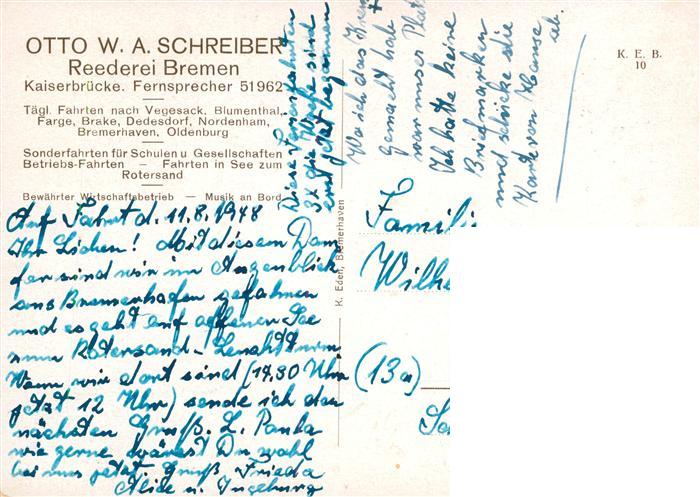 OTTO W. A. SCHREIBER
Reederei Bremen
Kaiserbrücke. Fernsprecher 51962
Tägl. Fahrten nach Vegesack, Blumenthal,
Farge, Brake, Dedesdorf, Nordenham,
Bremerhaven, Oldenburg
Sonderfahrten für Schulen u Gesellschaften
Betriebs-Fahrten – Fahrten in See zum
Rotersand
Bewährter Wirtschaftsbetrieb — Musik an Bord
Auf Fahrt d. 11.8.1948
Ihr Lieben! Mit diesem Dam
fer sind wir im Augenblick
aus Bremerhafen gefahren
und es geht auf offener See
zum Rotersand-Leuchtturm
Wenn wir dort sind (14.30 Uhr
jetzt 12 Uhr) sende ich den
nächsten Gruß. L. Paula
wie gerne wärest Du wohl
bei uns jetzt. Gruß Frieda
Alide u. Ingeburg
Diese Sonderfahrten
3x die Woche sind
erst jetzt begonnen
Wo ich das
gemacht hab
war unser Plat
Ich hatte keine
Briefmarken
und schicke die
Karte von Hause
ab.
K. E. B.
10
K. Eden, Bremerhaven
Famili
Wilhe
(13a)